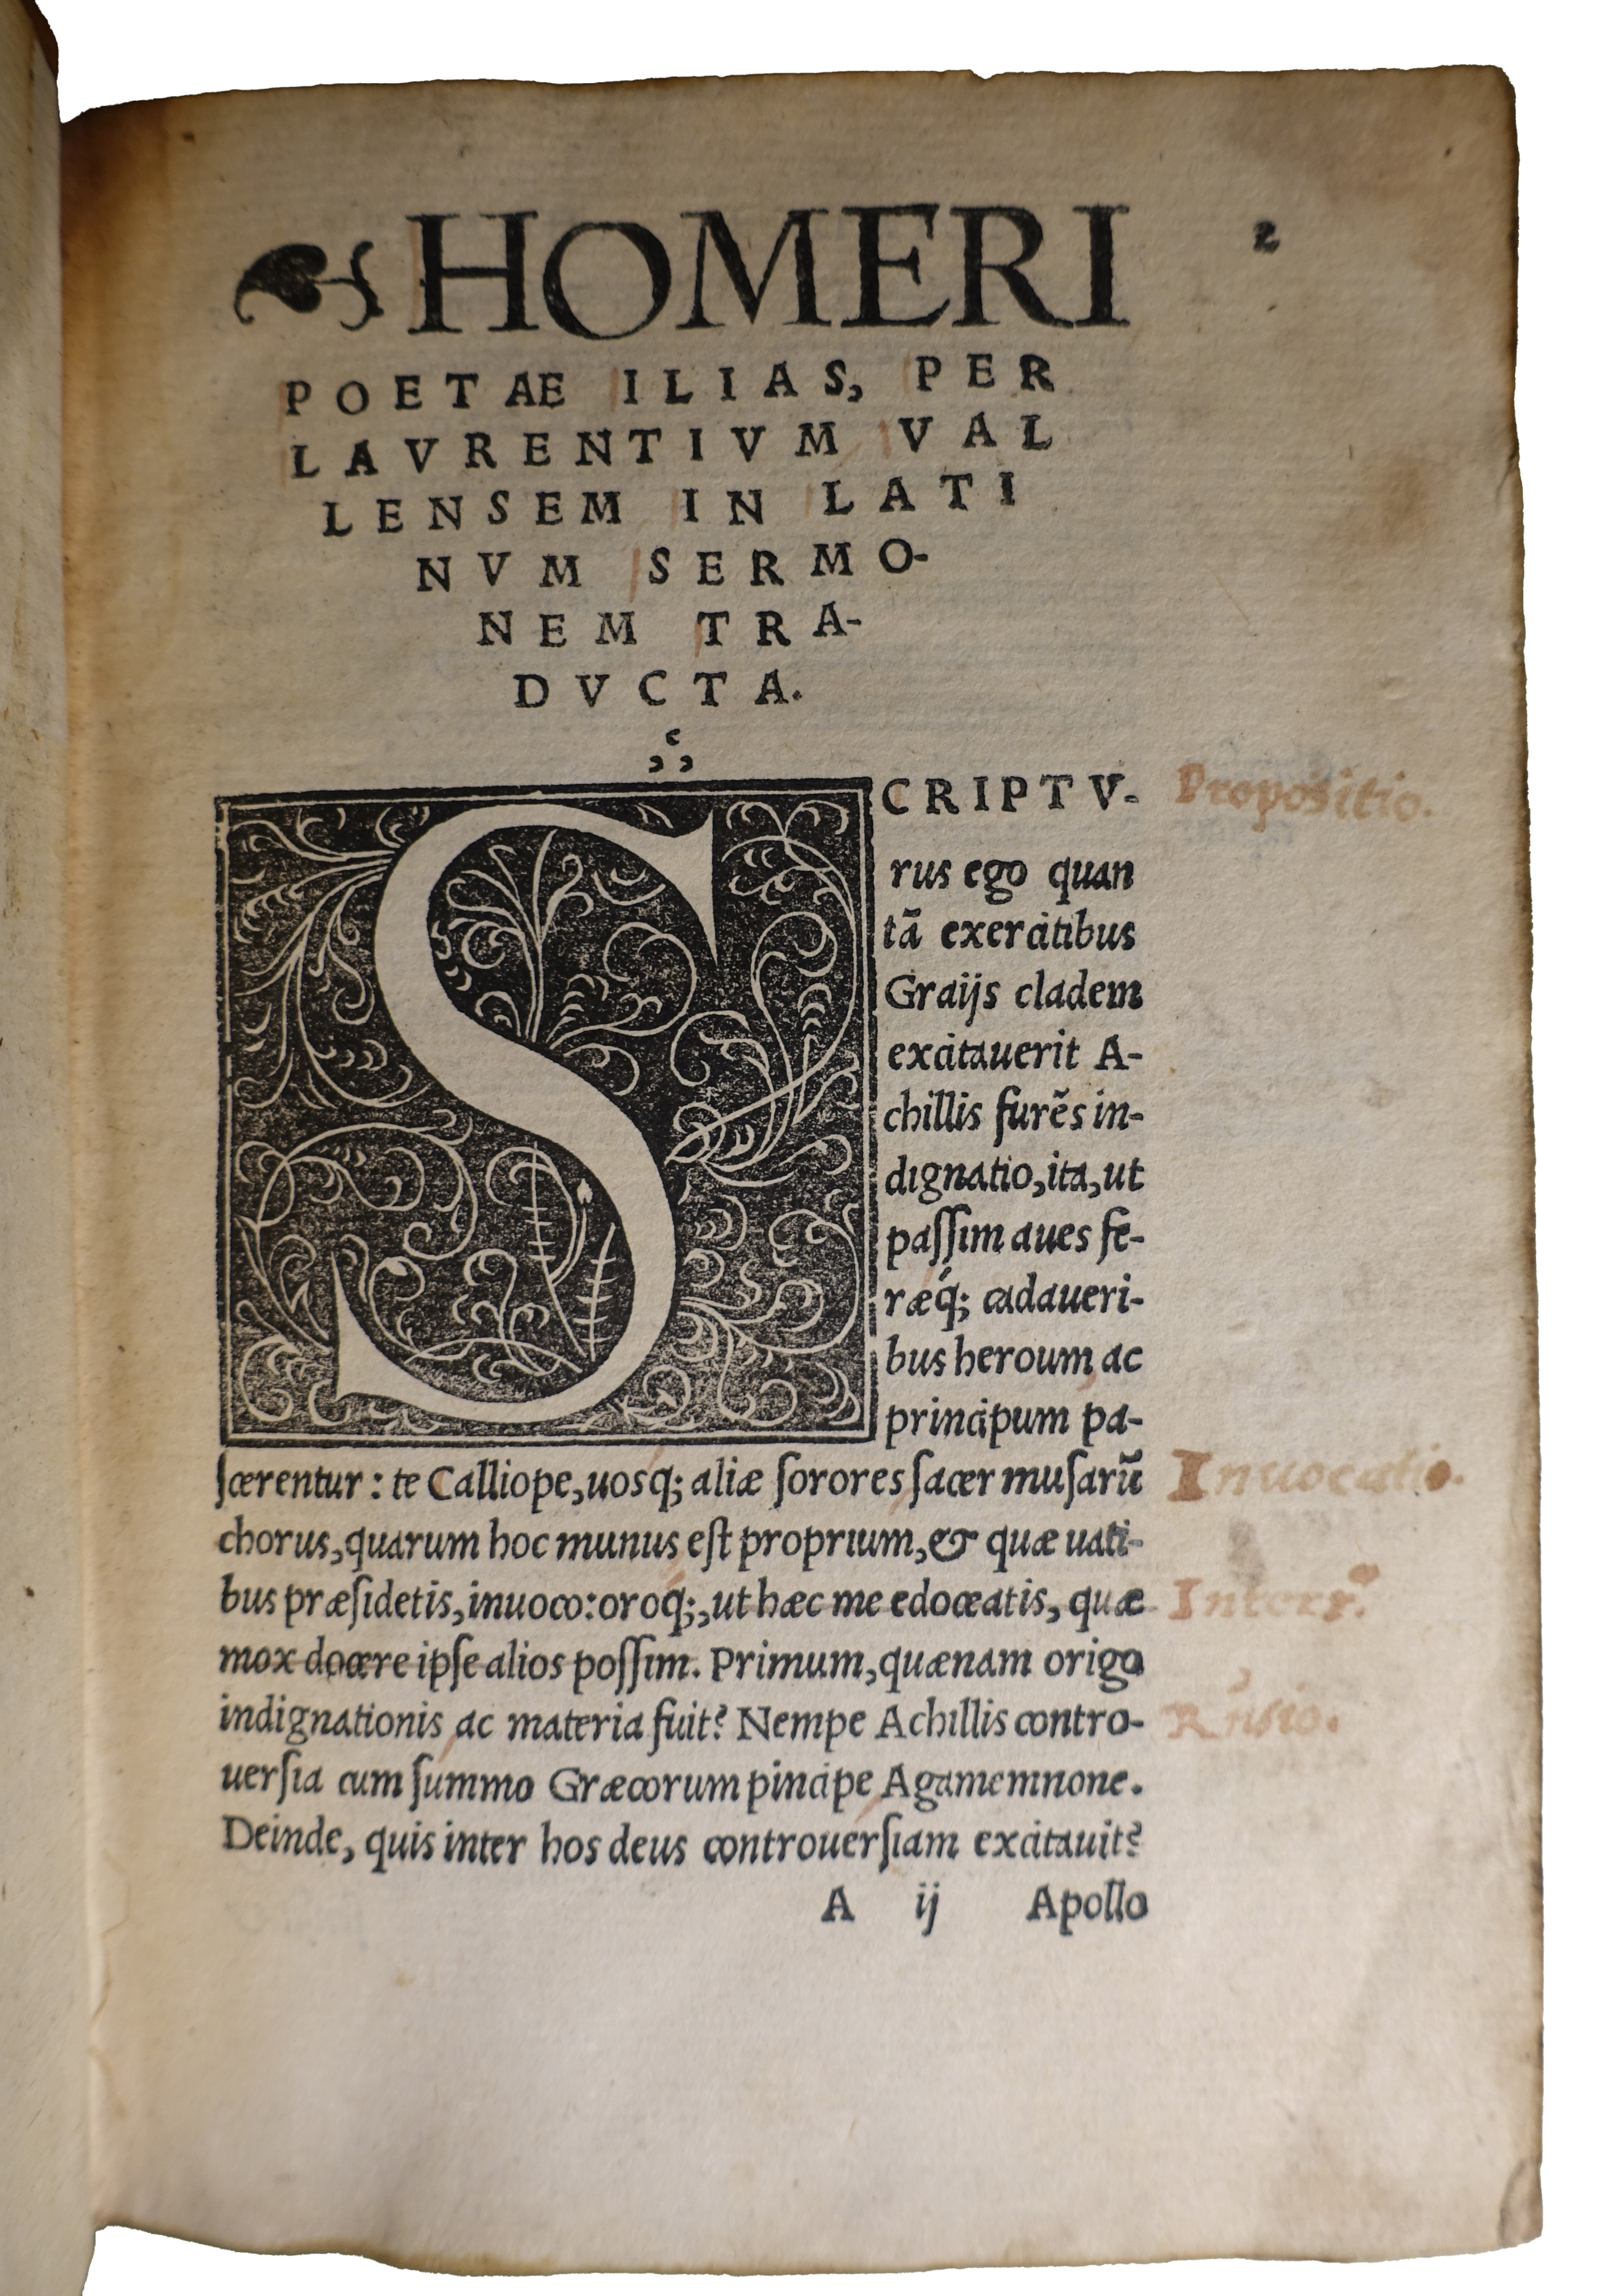 HOMERI 2
POETAE ILIAS, PER
LAVRENTIVM VAL
LENSEM IN LATI
NVM SERMO-
NEM TRA-
DVCTA.
SCRIPTV- Propositio.
rus ego quan
tã exercitibus
Graijs cladem
excitauerit A-
chillis furẽs in-
dignatio, ita, ut
paſſim aues fe-
ræq́; cadaueri-
bus heroum ac
principum pa-
ſcerentur: te Calliope, uosq; aliæ ſorores ſacer muſarũ Inuocatio.
chorus, quarum hoc munus eſt proprium, & quæ uati-
bus præſidetis, inuoco: oroq;, ut hæc me edoceatis, quæ
mox docere ipſe alios poſſim. Primum, quænam origo
indignationis ac materia fuit? Nempe Achillis contro-
uerſia cum ſummo Græcorum pincipe Agamemnone.
Deinde, quis inter hos deus controuerſiam excitauit?
A ij Apollo